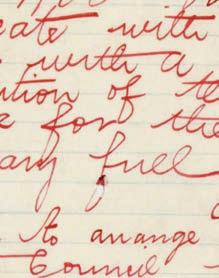 eate with
with a
ution of th
for the
any full
to arrange
Council